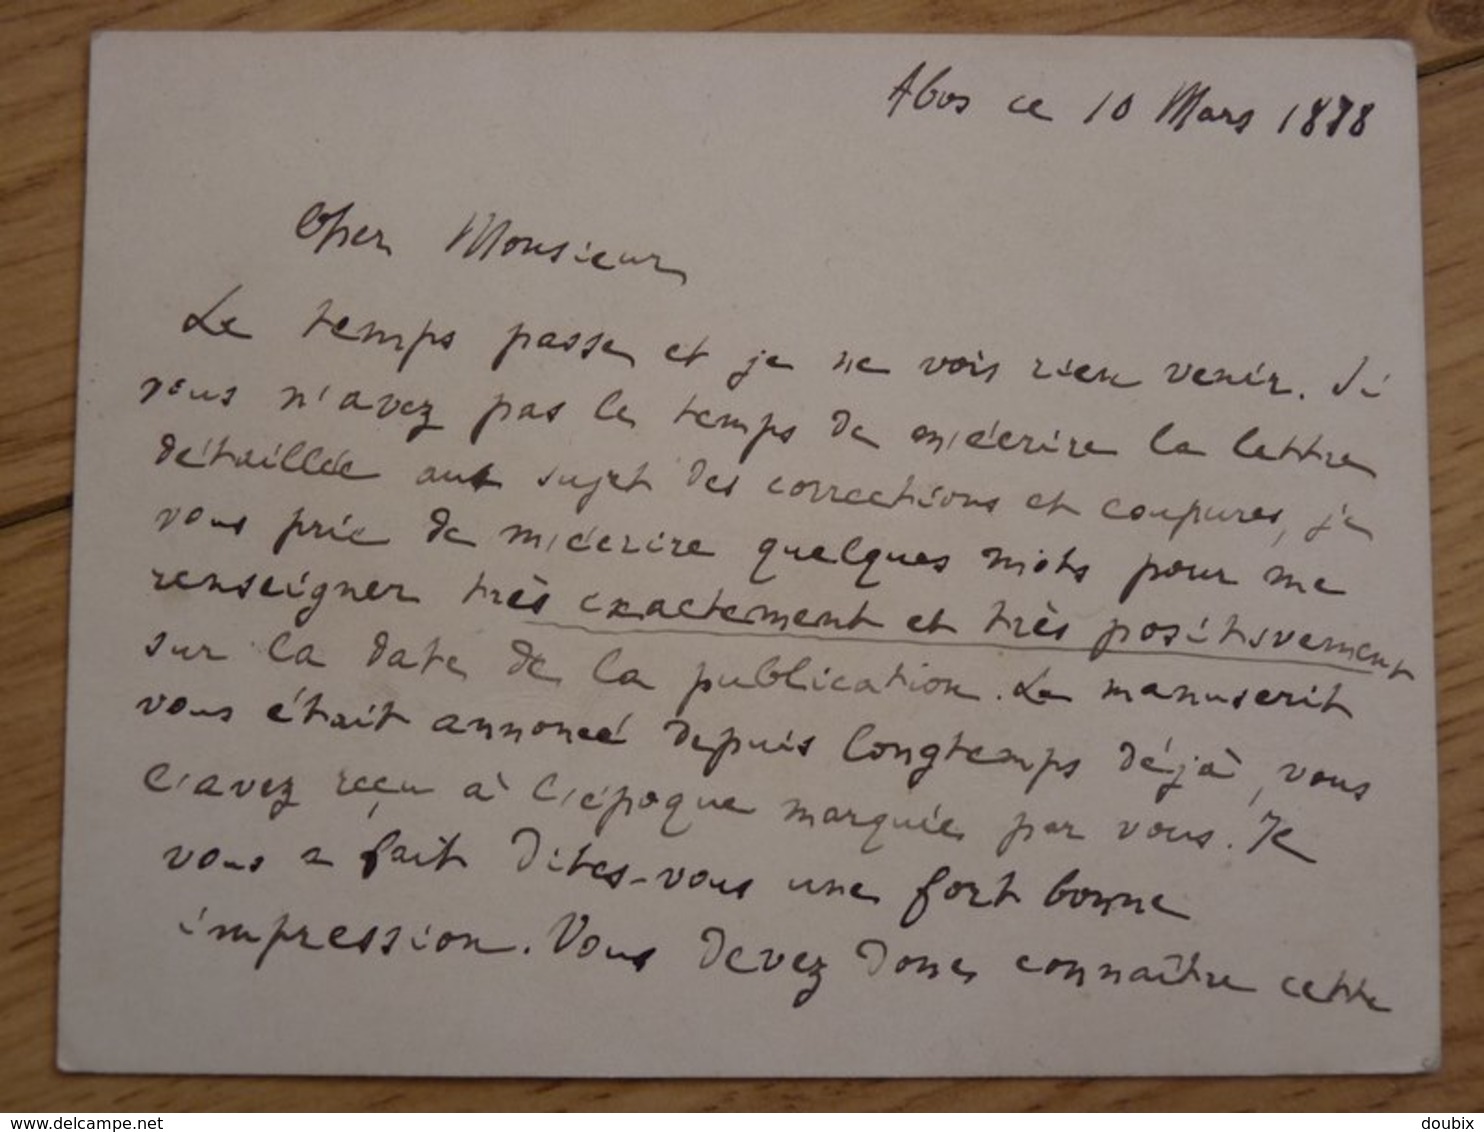 Abos ce 10 Mars 1888
Cher Monsieur
Le temps passe et je ne vois rien venir. Si
vous n'avez pas le temps de m'écrire la lettre
détaillée au sujet des corrections et coupures, je
vous prie de m'écrire quelques mots pour me
renseigner très exactement et très positivement
sur la date de la publication. Le manuscrit
vous était annoncé depuis longtemps déjà, vous
l'avez reçu à l'époque marquée par vous. Il
vous a fait dites-vous une fort bonne
impression. Vous devez donc connaître cette
www.delcampe.net
doubix